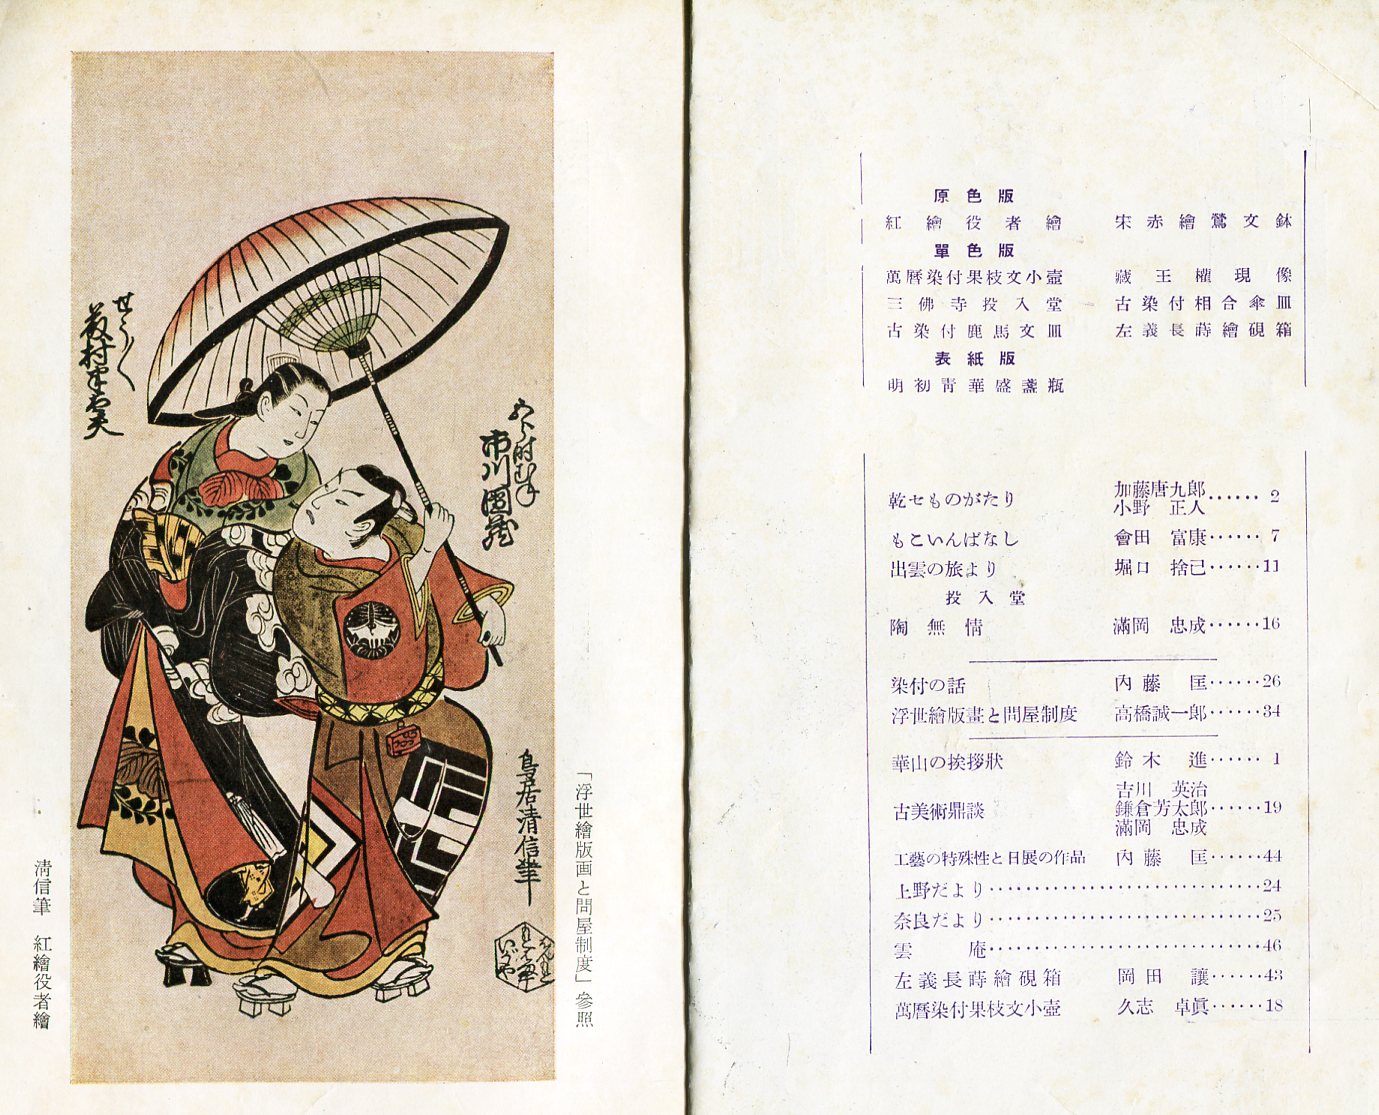 市川團蔵
鳥居清信筆
「浮世繪版画と問屋制度」參照
清信筆　紅繪役者繪
原色版
紅繪役者繪　宋赤繪鶯文鉢
單色版
萬曆染付果枝文小壺　藏王權現像
三佛寺投入堂　古染付相合傘皿
古染付鹿馬文皿　左義長蒔繪硯箱
表紙版
明初靑華盛盞瓶
乾せものがたり　加藤唐九郎　小野正人……2
もこいんばなし　會田富康……7
出雲の旅より　堀口捨己……11
投入堂
陶無情　滿岡忠成……16
染付の話　内藤匡……26
浮世繪版畫と問屋制度　高橋誠一郎……34
華山の挨拶狀　鈴木進……1
古美術鼎談　吉川英治　鎌倉芳太郎　滿岡忠成……19
工藝の特殊性と日展の作品　内藤匡……44
上野だより……24
奈良だより……25
雲庵……46
左義長蒔繪硯箱　岡田讓……43
萬曆染付果枝文小壺　久志卓眞……18